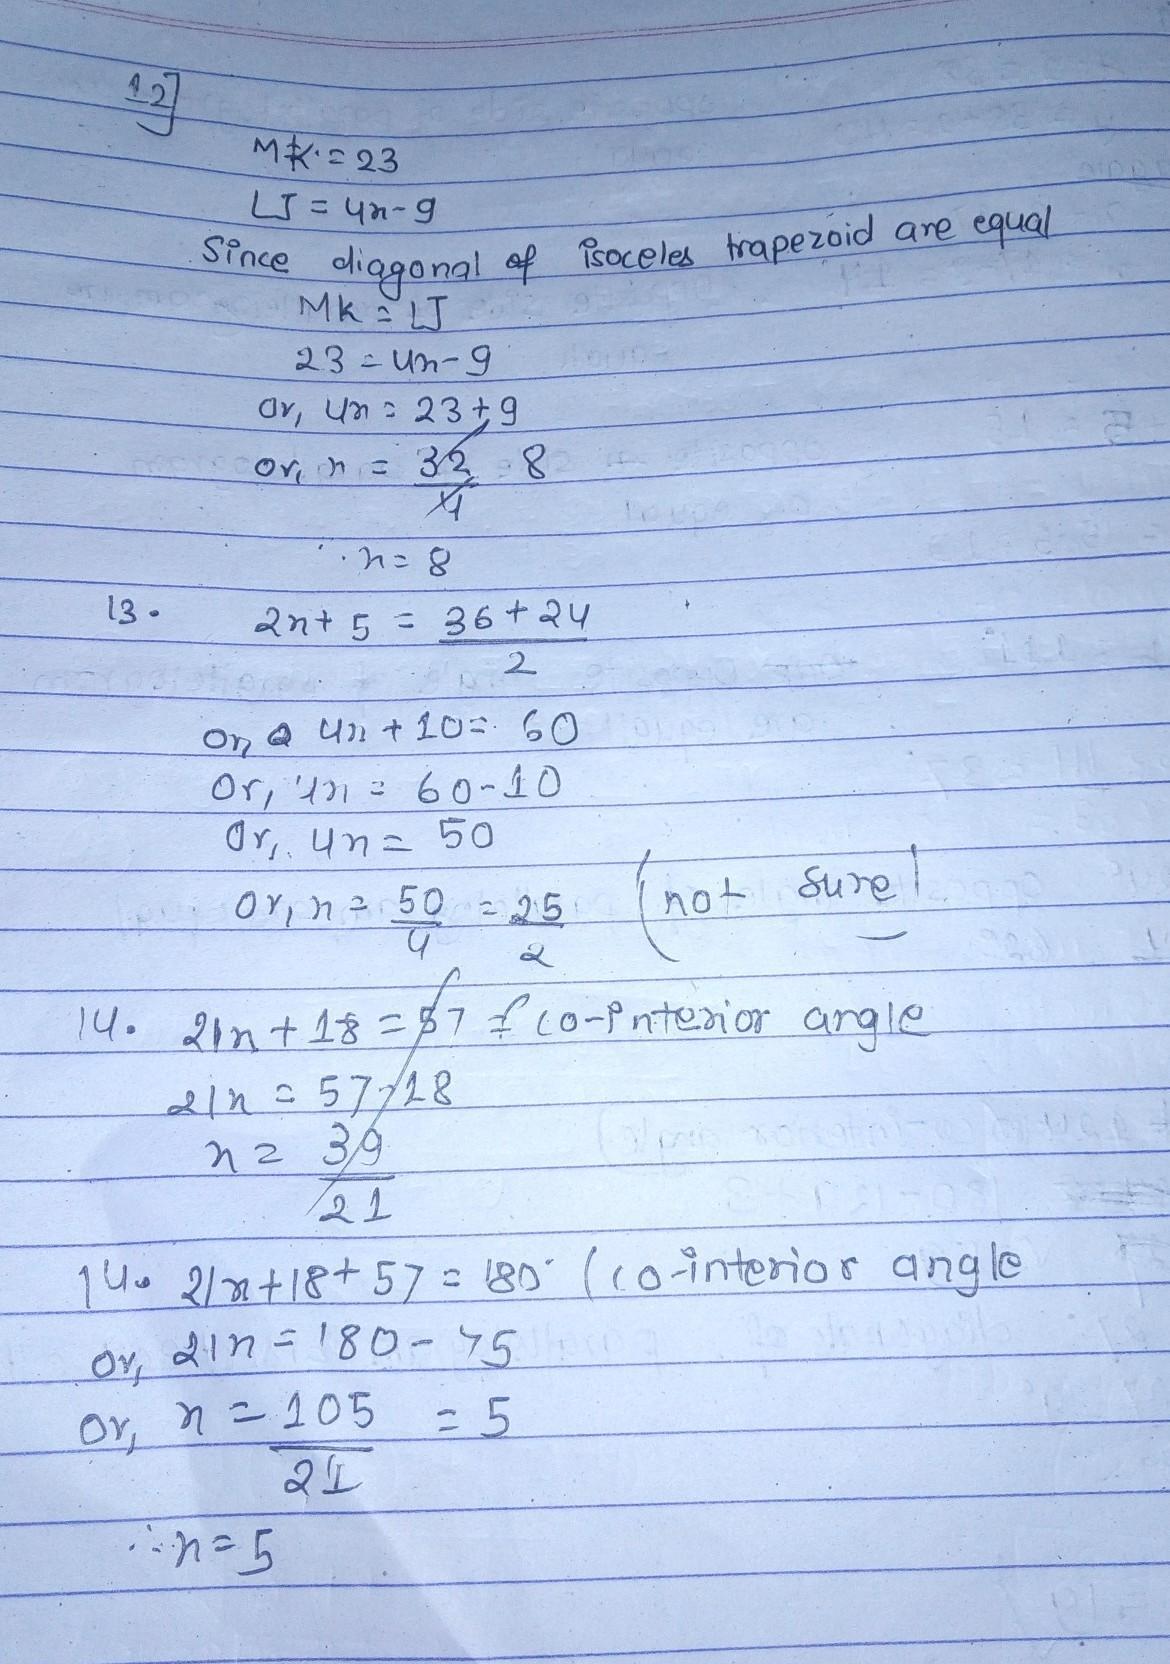 12]
MK = 23
LJ = 4x-9
Since diagonal of isoceles trapezoid are equal
MK = LJ
23 = 4x-9
or, 4x = 23+9
or, x = 32/4 8
∴ x = 8
13. 2x+5 = 36+24/2
or, 4x+10 = 60
or, 4x = 60-10
or, 4x = 50
or, x = 50/4 = 25/2 (not sure)
14. 21x+18 = 57 { co-interior angle
21x = 57-18
x = 39/21
14. 21x+18+57 = 180° (co-interior angle
or, 21x = 180-75
or, x = 105/21 = 5
∴ x = 5